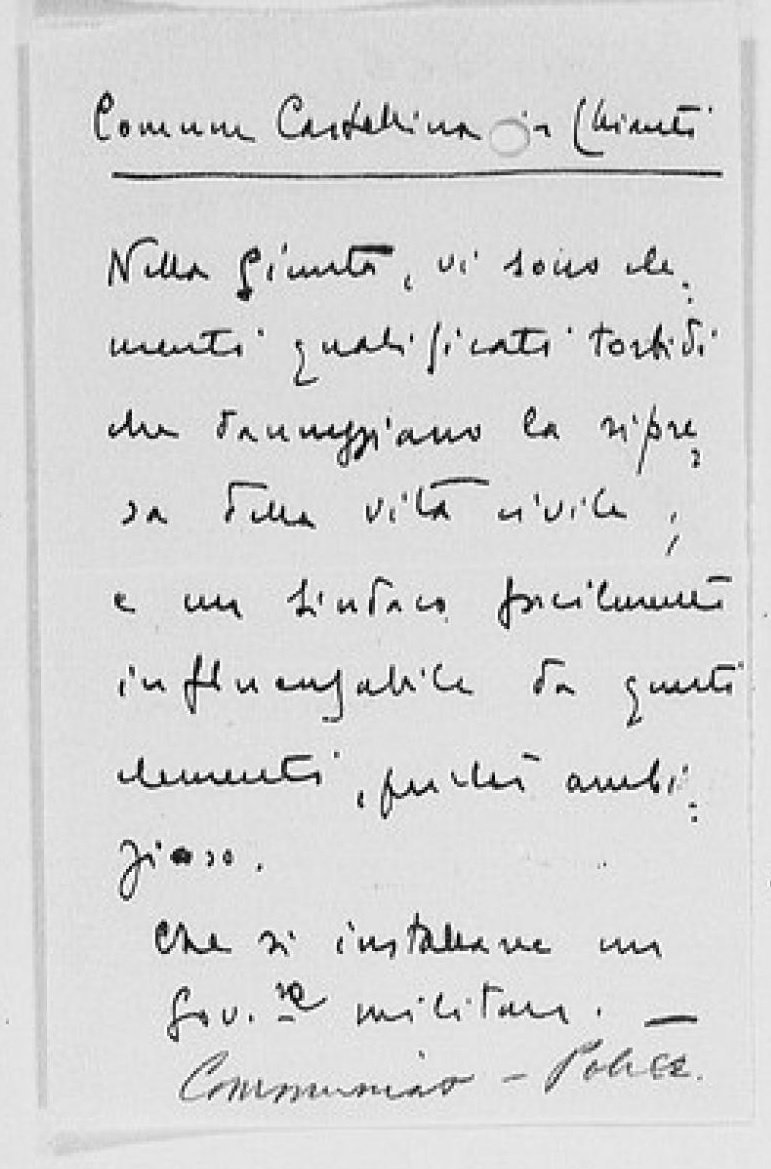 Comune Castellina in Chianti
Nella Giunta, vi sono ele:
menti qualificati torbidi
che danneggiano la ripre
sa della vita civile;
e un sindaco facilmente
influenzabile da questi
elementi, perchè ambi:
zioso.
Che si installasse un
Gov.re militare. —
– Police.